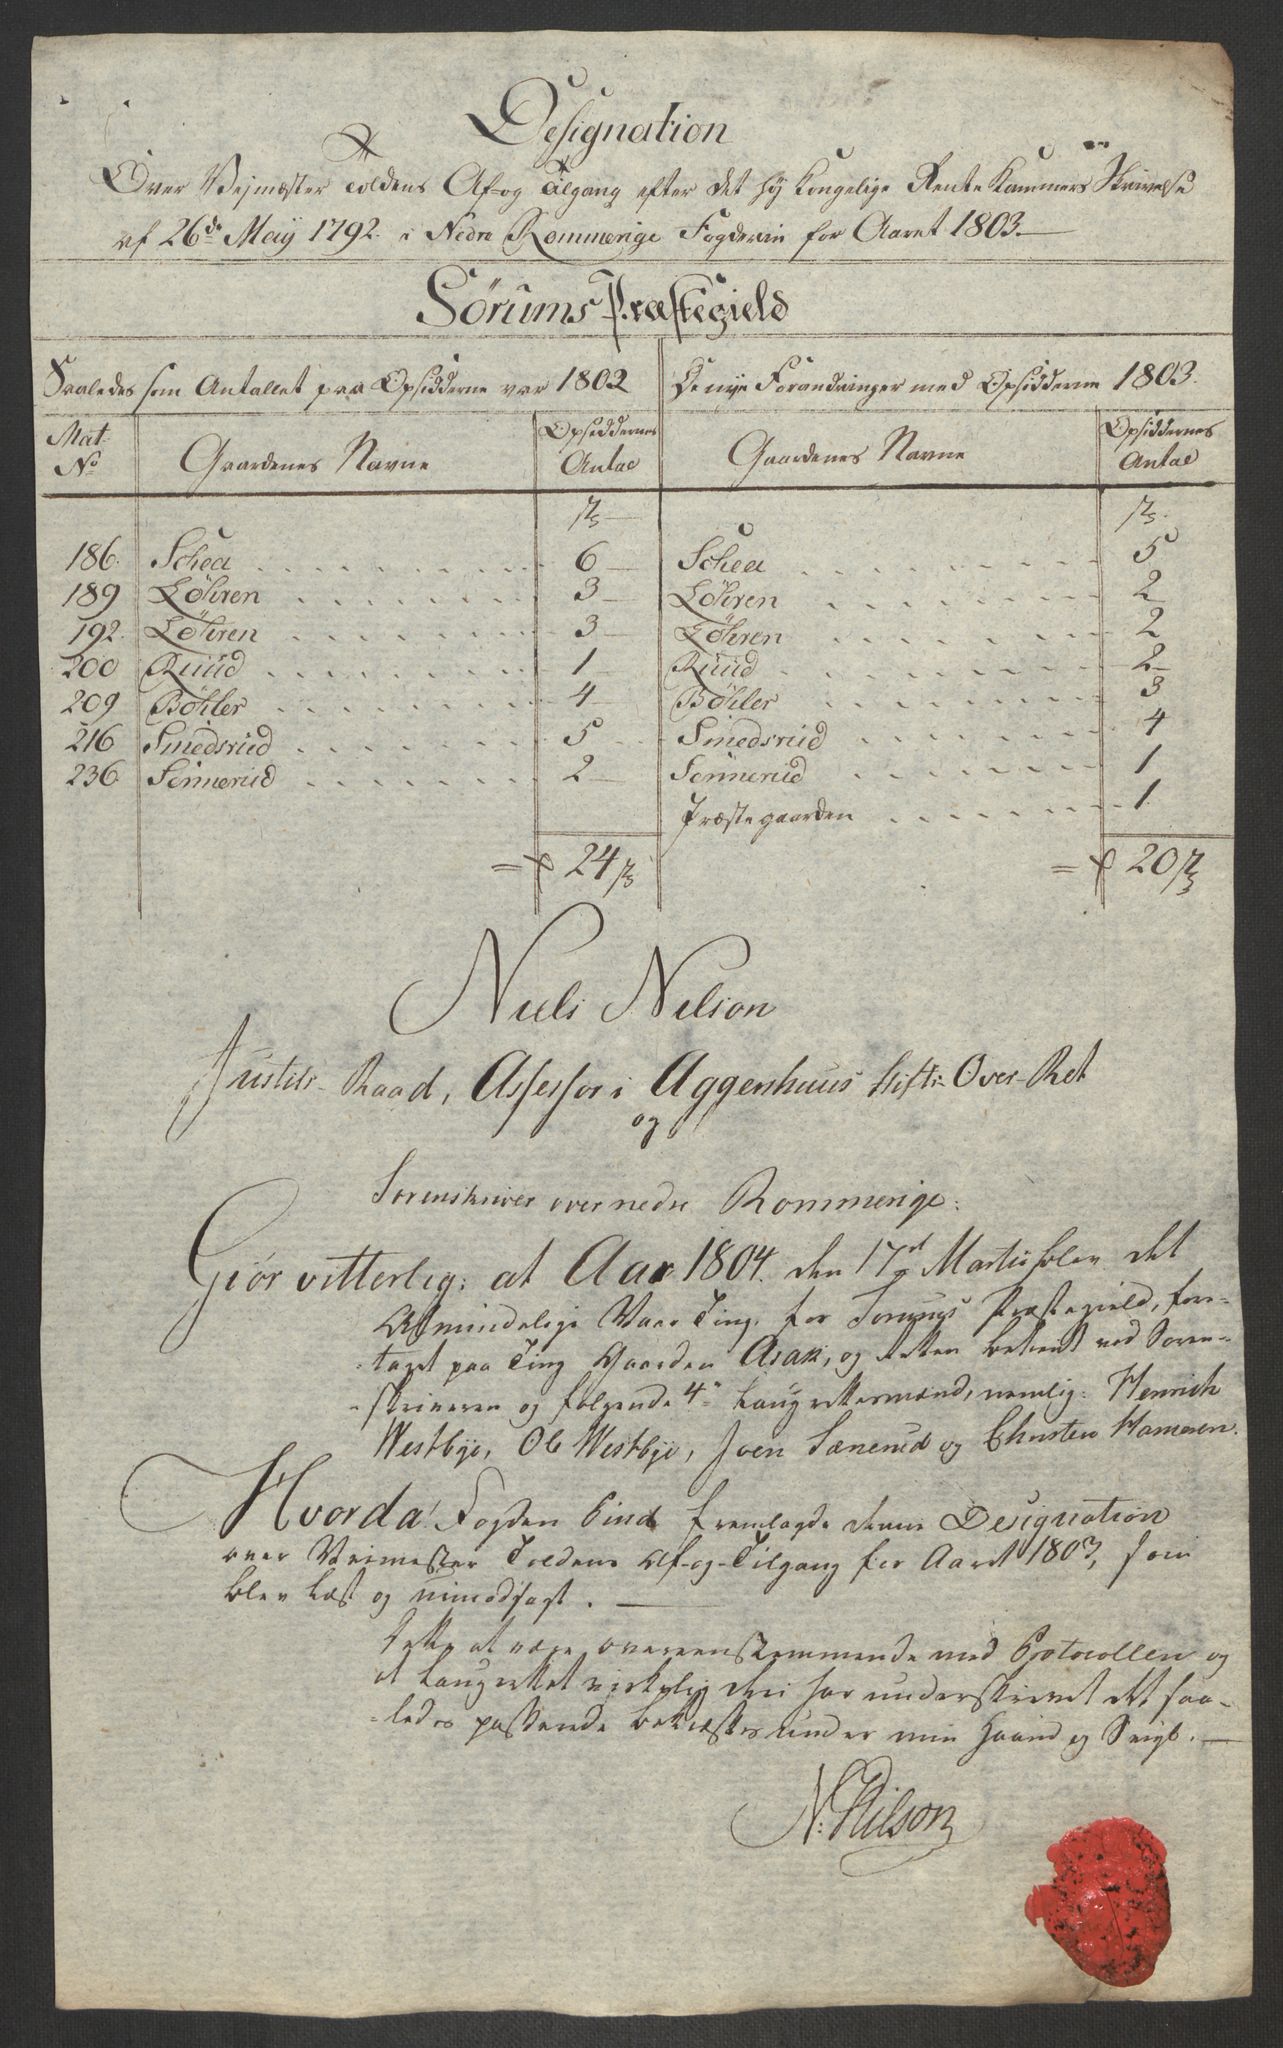 Designation
Over Vejmester Toldens Af- og Tilgang efter det høy Kongelige Rente Kammers Skrivelse
af 26de May 1792. i Nedre Rommerige Fogderie for Aaret 1803.
Sørums Præstegield
Saaledes som Antallet paa Opsidderne var 1802
De nye Forandringer med Opsidderne 1803.
Mat: No
Gaardenes Navne
Opsiddernes Antal
Gaardenes Navne
Opsiddernes Antal
186. Schea 6 Schea 5
189 Löhren 3 Löhren 2
192. Löhren 3 Löhren 2
200 Ruud 1 Ruud 2
209 Böhler 4 Böhler 3
216 Smedsrud 5 Smedsrud 4
236 Sennerud 2 Sennerud 1
Præstegaarden 1.
= 24 = 20
Niels Nilson
Justits-Raad, Assessor i Aggershuus Stifts-Over-Ret
og
Sorenskriver over nedre Rommerige:
Giør vitterlig: at Aar 1804. den 17de Martii blev det
Almindelige Vaar Ting, for Sørums Præstegield, fore-
taget paa Ting Gaarden Asak, og Retten betient ved Soren-
skriveren og følgende 4re Laugrettesmænd, nemlig: Henrich
Westbye, Ole Westbye, Joen Sænerud og Christen Hameren.
Hvorda Fogden Bind fremlagde denne Designation
over Veimester Toldens Af- og Tilgang for Aaret 1803, som
blev læst og uimodsagt.
Dette at være overeensstemmende med Protocollen og
at Laugrettet virkelig deri har underskrevet det saa-
ledes passerede bekræftes under min Haand og Seigl.
N: Nilson